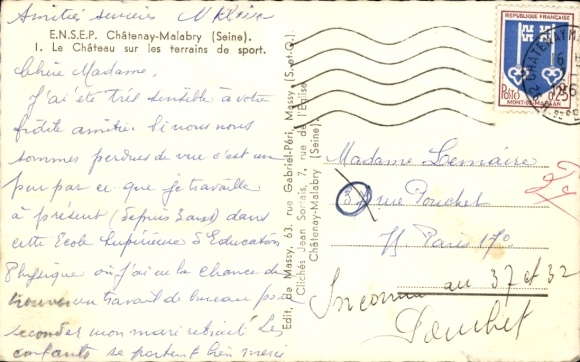 Amitiés sincères
E.N.S.E.P. Châtenay-Malabry (Seine).
I. Le Château sur les terrains de sport.
Chère Madame,
J'ai été très sensible à votre
fidèle amitié. Si nous nous
sommes perdues de vue c'est un
peu par ce que je travaille
à présent (depuis 3 ans) dans
cette Ecole Supérieure d'Education
Physique où j'ai eu la chance de
trouver un travail de bureau pour
seconder mon mari retraité. Les
enfants se portent bien merci
Edit. de Massy, 63, rue Gabriel-Péri, Massy. (S.-et-O.)
Clichés Jean Sorlais, 7, rue de l'Église
Châtenay-Malabry (Seine).
REPUBLIQUE FRANÇAISE
POSTES 0,25
MONT-DE-MARSAN
CHATENAY M
Madame Lemaire
rue Pouchet
75 Paris 17e
Inconnu au 37 et 32
Pouchet